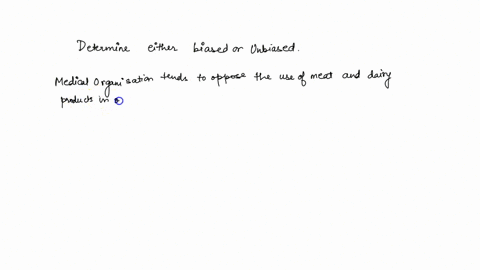 Determine either biased or Unbiased.
Medical Organisation tends to oppose the use of meat and dairy
products in